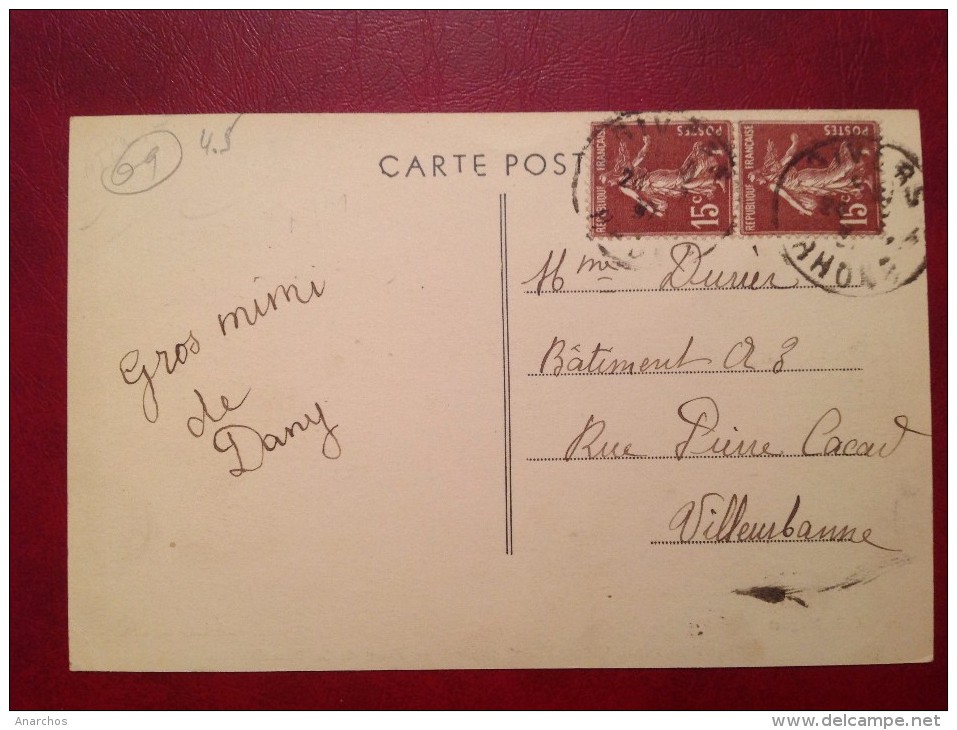 69
4.5
CARTE POST
REPUBLIQUE FRANÇAISE
POSTES
15c
REPUBLIQUE FRANÇAISE
POSTES
15c
RHONE
Mme Durier
Bâtiment A 3
Rue Pierre Cacard
Villeurbanne
Gros mimi
de
Dany
Anarchos
http://www.delcampe.net